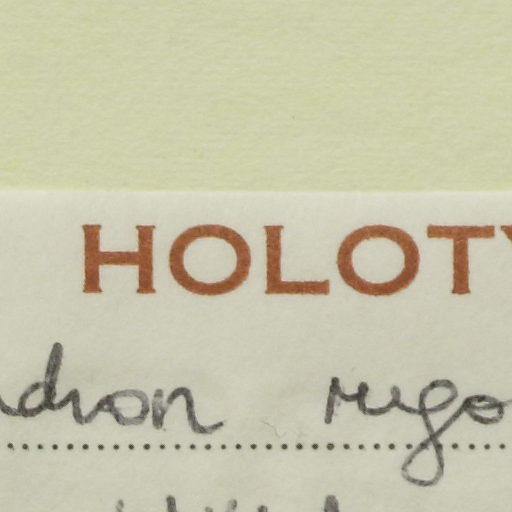 HOLOTY
ndron rugo